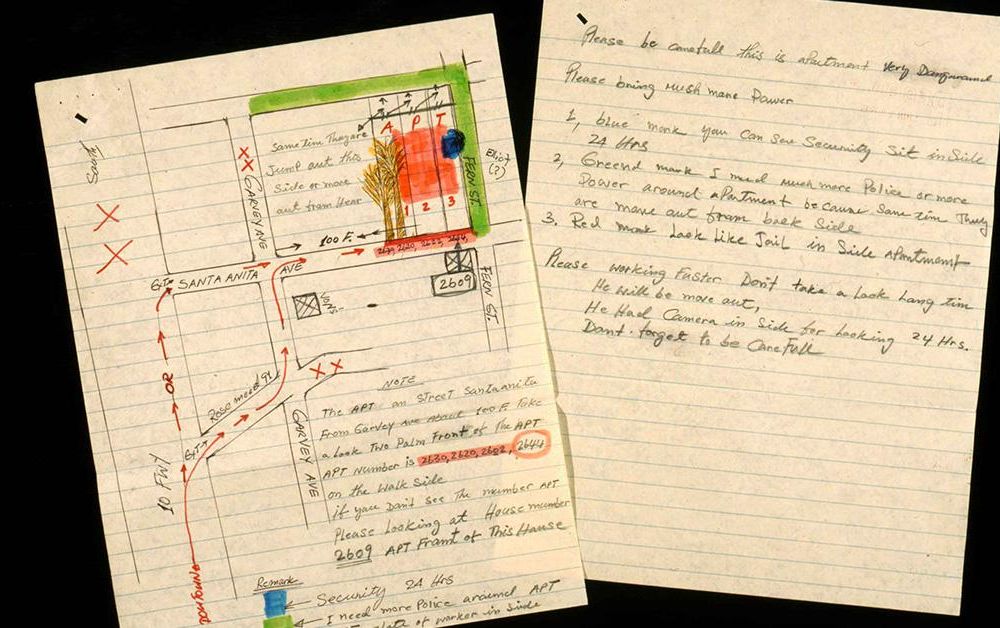 South
Same time They are
Jump out this
Side or more
out from Hear
A P T
1 2 3
Exit
(?)
FERN ST.
GARVEY AVE
100 F.
2630, 2620, 2622, 2644
EXIT
SANTA ANITA AVE
2609
FERN ST.
VONS
OR
Rosemeed 91
EXIT
10 FWY
GARVEY AVE
NOTE
The APT on STreeT Santa anita
From Garvey ave About 100 F. Take
a look Two Palm Front of The APT
APT Number is 2630, 2620, 2602, 2644
on the Walk Side
if you Don't See The number APT
Please Looking at House number
2609 APT Front of This House
Remark
Security 24 Hrs
I need more Police around APT
of worker in Side
Please be carefull this is apartment Very Dangraund
Please bring Mush mare Power
1, blue mark you Can See Security Sit in Side
24 Hrs
2, Greend mark I need Much more Police or more
Power around apartment because Same time They
are move out from back Side
3. Red mark Look Like Jail in Side apartment
Please working Faster Don't take a Look Lang tim
He will be move out,
He Had Camera in Side for Looking 24 Hrs.
Dant. forget to be Carefull